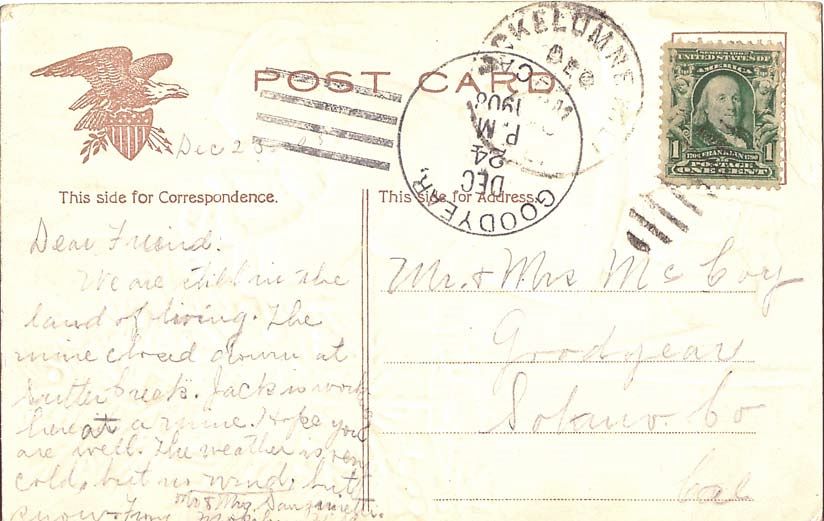 POST CARD
MOKELUMNE HILL
CAL.
DEC
GOODYEAR,
CAL.
DEC
24
P.M
1908
UNITED STATES OF
AMERICA
1706 FRANKLIN 1790
1 1
POSTAGE
ONE CENT
Dec 23
This side for Correspondence.
This side for Address.
Dear Friend.
We are still in the
land of living. The
mine closed down at
Sutter Creek. Jack is working
here at a mine. Hope you
are well. The weather is very
cold, but no wind, but
snow. From
Mr & Mrs
Mr. & Mrs McCoy
Goodyear
Solano. Co
Cal